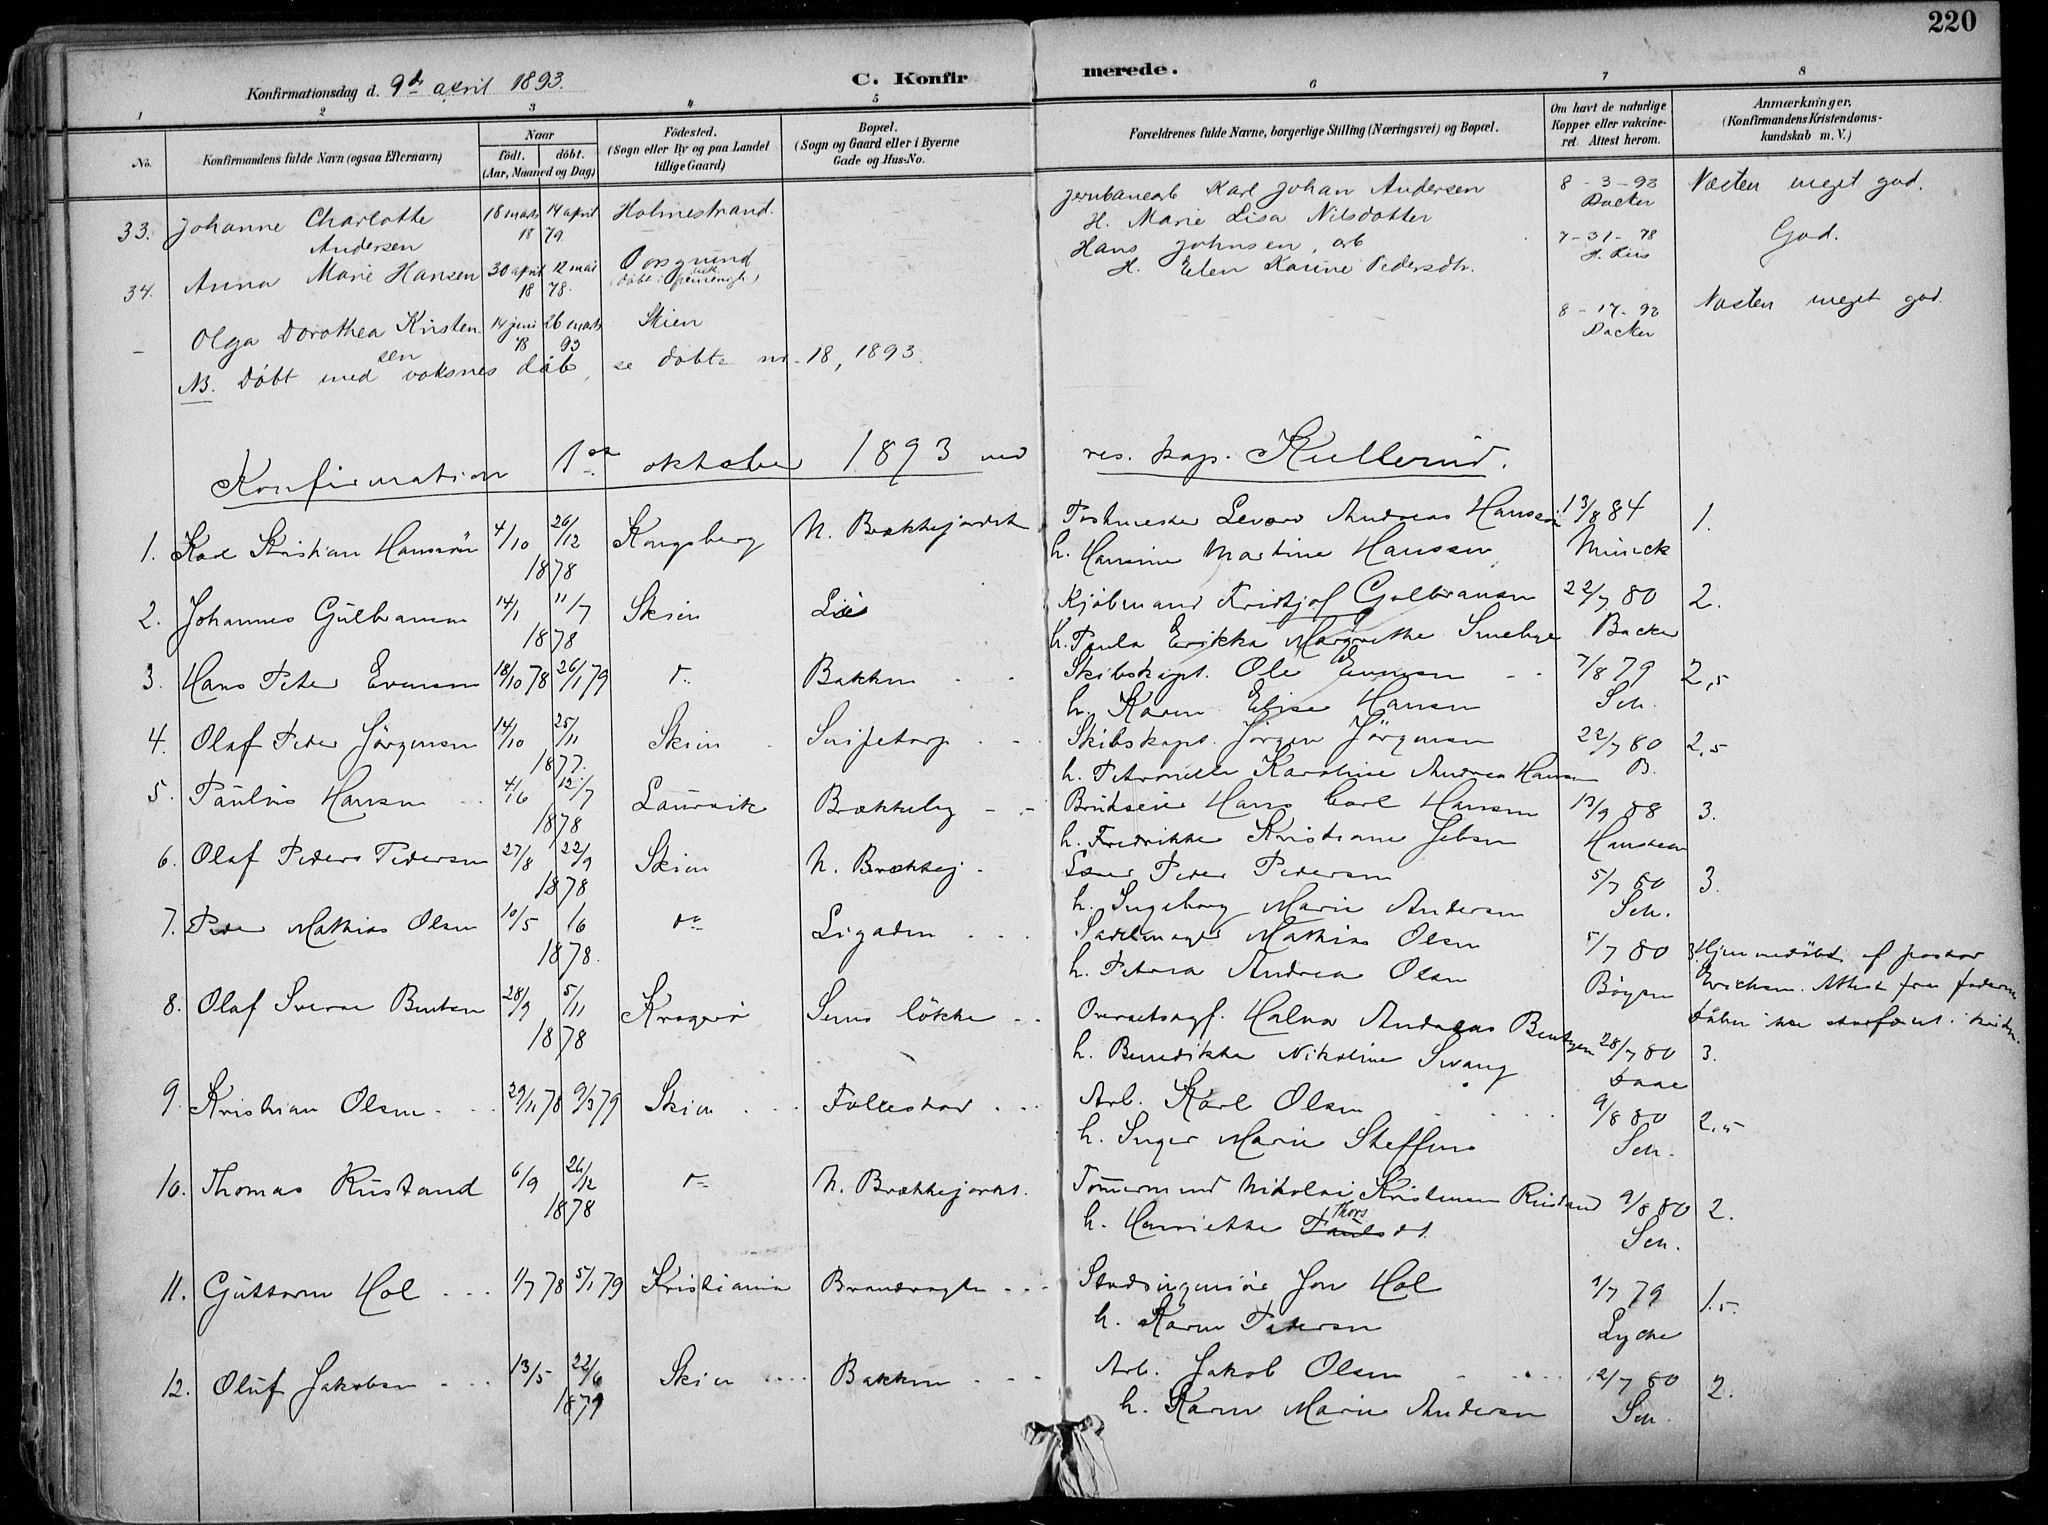 220
Konfirmationsdag d. 9de april 1893. C. Konfirmerede.
1 2 3 4 5 6 7 8
No. Konfirmandens fulde Navn (ogsaa Efternavn) Naar födt. döbt. (Aar, Maaned og Dag) Födested. (Sogn eller By og paa Landet tillige Gaard) Bopæl. (Sogn og Gaard eller i Byerne Gade og Hus-No. Forældrenes fulde Navne, borgerlige Stilling (Næringsvei) og Bopæl. Om havt de naturlige Kopper eller vakcineret. Attest herom. Anmærkninger. (Konfirmandens Kristendomskundskab m. V.)
33. Johanne Charlotte 18 marts 14 april Holmestrand. Jernbanearb Karl Johan Andersen 8-3-93 Næsten meget god.
Andersen 18 79. H. Marie Lisa Nilsdatter Backer
34. Anna Marie Hansen 30 april 12 mai Porsgrund Hans Johnsen, arb 7-31-78 God.
18 78. H. Elen Karine Pedersdtr.
- Olga Dorothea Kristensen 14 juni 26 marts Skien 8-17-93 Næsten meget god.
78 93 Backer
NB. Döbt med voksnes dåb, se döbte nr. 18, 1893.
Konfirmation 1ste oktober 1893 ved res. kap. Kullerud.
1. Karl Kristian Hanssön 4/10 26/12 Kongsberg N. Brækkejordet Postmester Andreas Hanssön 13/8 84 1.
1878 h. Hansine Martine Hanssen Münick
2. Johannes Gulbransen 14/1 11/7 Skien Lie Kjöbmand Fridtjof Gulbransen 22/7 80 2.
1878 h. Paula Erikka Margrethe Smebye Backer
3. Hans Peter Evensen 18/10 78 26/1 79 do Bakken Skibskapt. Ole Evensen 7/8 79 2,5
h. Karen Elise Hansen Sch.
4. Olaf Peder Jörgensen 14/10 25/11 Skien Snipetorp Skibskapt. Jörgen Jörgensen 22/7 80 2,5
1877. h. Petronelle Karoline Andrea Hansen B.
5. Paulus Hansen 4/6 12/7 Laurvik Brækkeby Hans Carl Hansen 13/9 88 3.
1878 h. Fredrikke Kristiane Jebsen Hansteen
6. Olaf Peder Pedersen 27/8 22/9 Skien N. Brækkej. Peder Pedersen 5/7 80 3.
1878 h. Ingeborg Marie Andersen Sch.
7. Peder Mathias Olsen 10/5 1/6 do Ligaden Sadelmager Mathias Olsen 5/7 80 3. Hjemmedöbt af pastor
1878. h. Petrea Andrea Olsen Bögen Erichsen. Attest fra faderen
8. Olaf Sverre Bentsen 28/9 5/11 Kragerö Sems lökke Overretssagf. Halvor Andreas Bentzen 28/7 80 3.
1878 h. Benedikte Nikoline Svang Daae
9. Kristian Olsen 29/11 78 9/3 79 Skien Follestad Arb. Karl Olsen 9/8 80 2,5
h. Inger Marie Steffens Sch.
10. Thomas Rustand 6/9 26/12 do N. Brækkejordet. Tömmermand Nikolai Kristensen Rustand 9/8 80 2.
1878 h. Henriette Thorsdt. Sch.
11. Guttorm Hol 1/7 78 5/1 79 Kristiania Brandvagten Stadsingeniör Jon Hol 1/7 79 1.5.
h. Karen Petersen Lyche
12. Oluf Jakobsen 13/5 22/6 Skien Bakken Arb. Jakob Olsen 12/7 80 2.
1879 h. Karen Marie Andersen Sch.